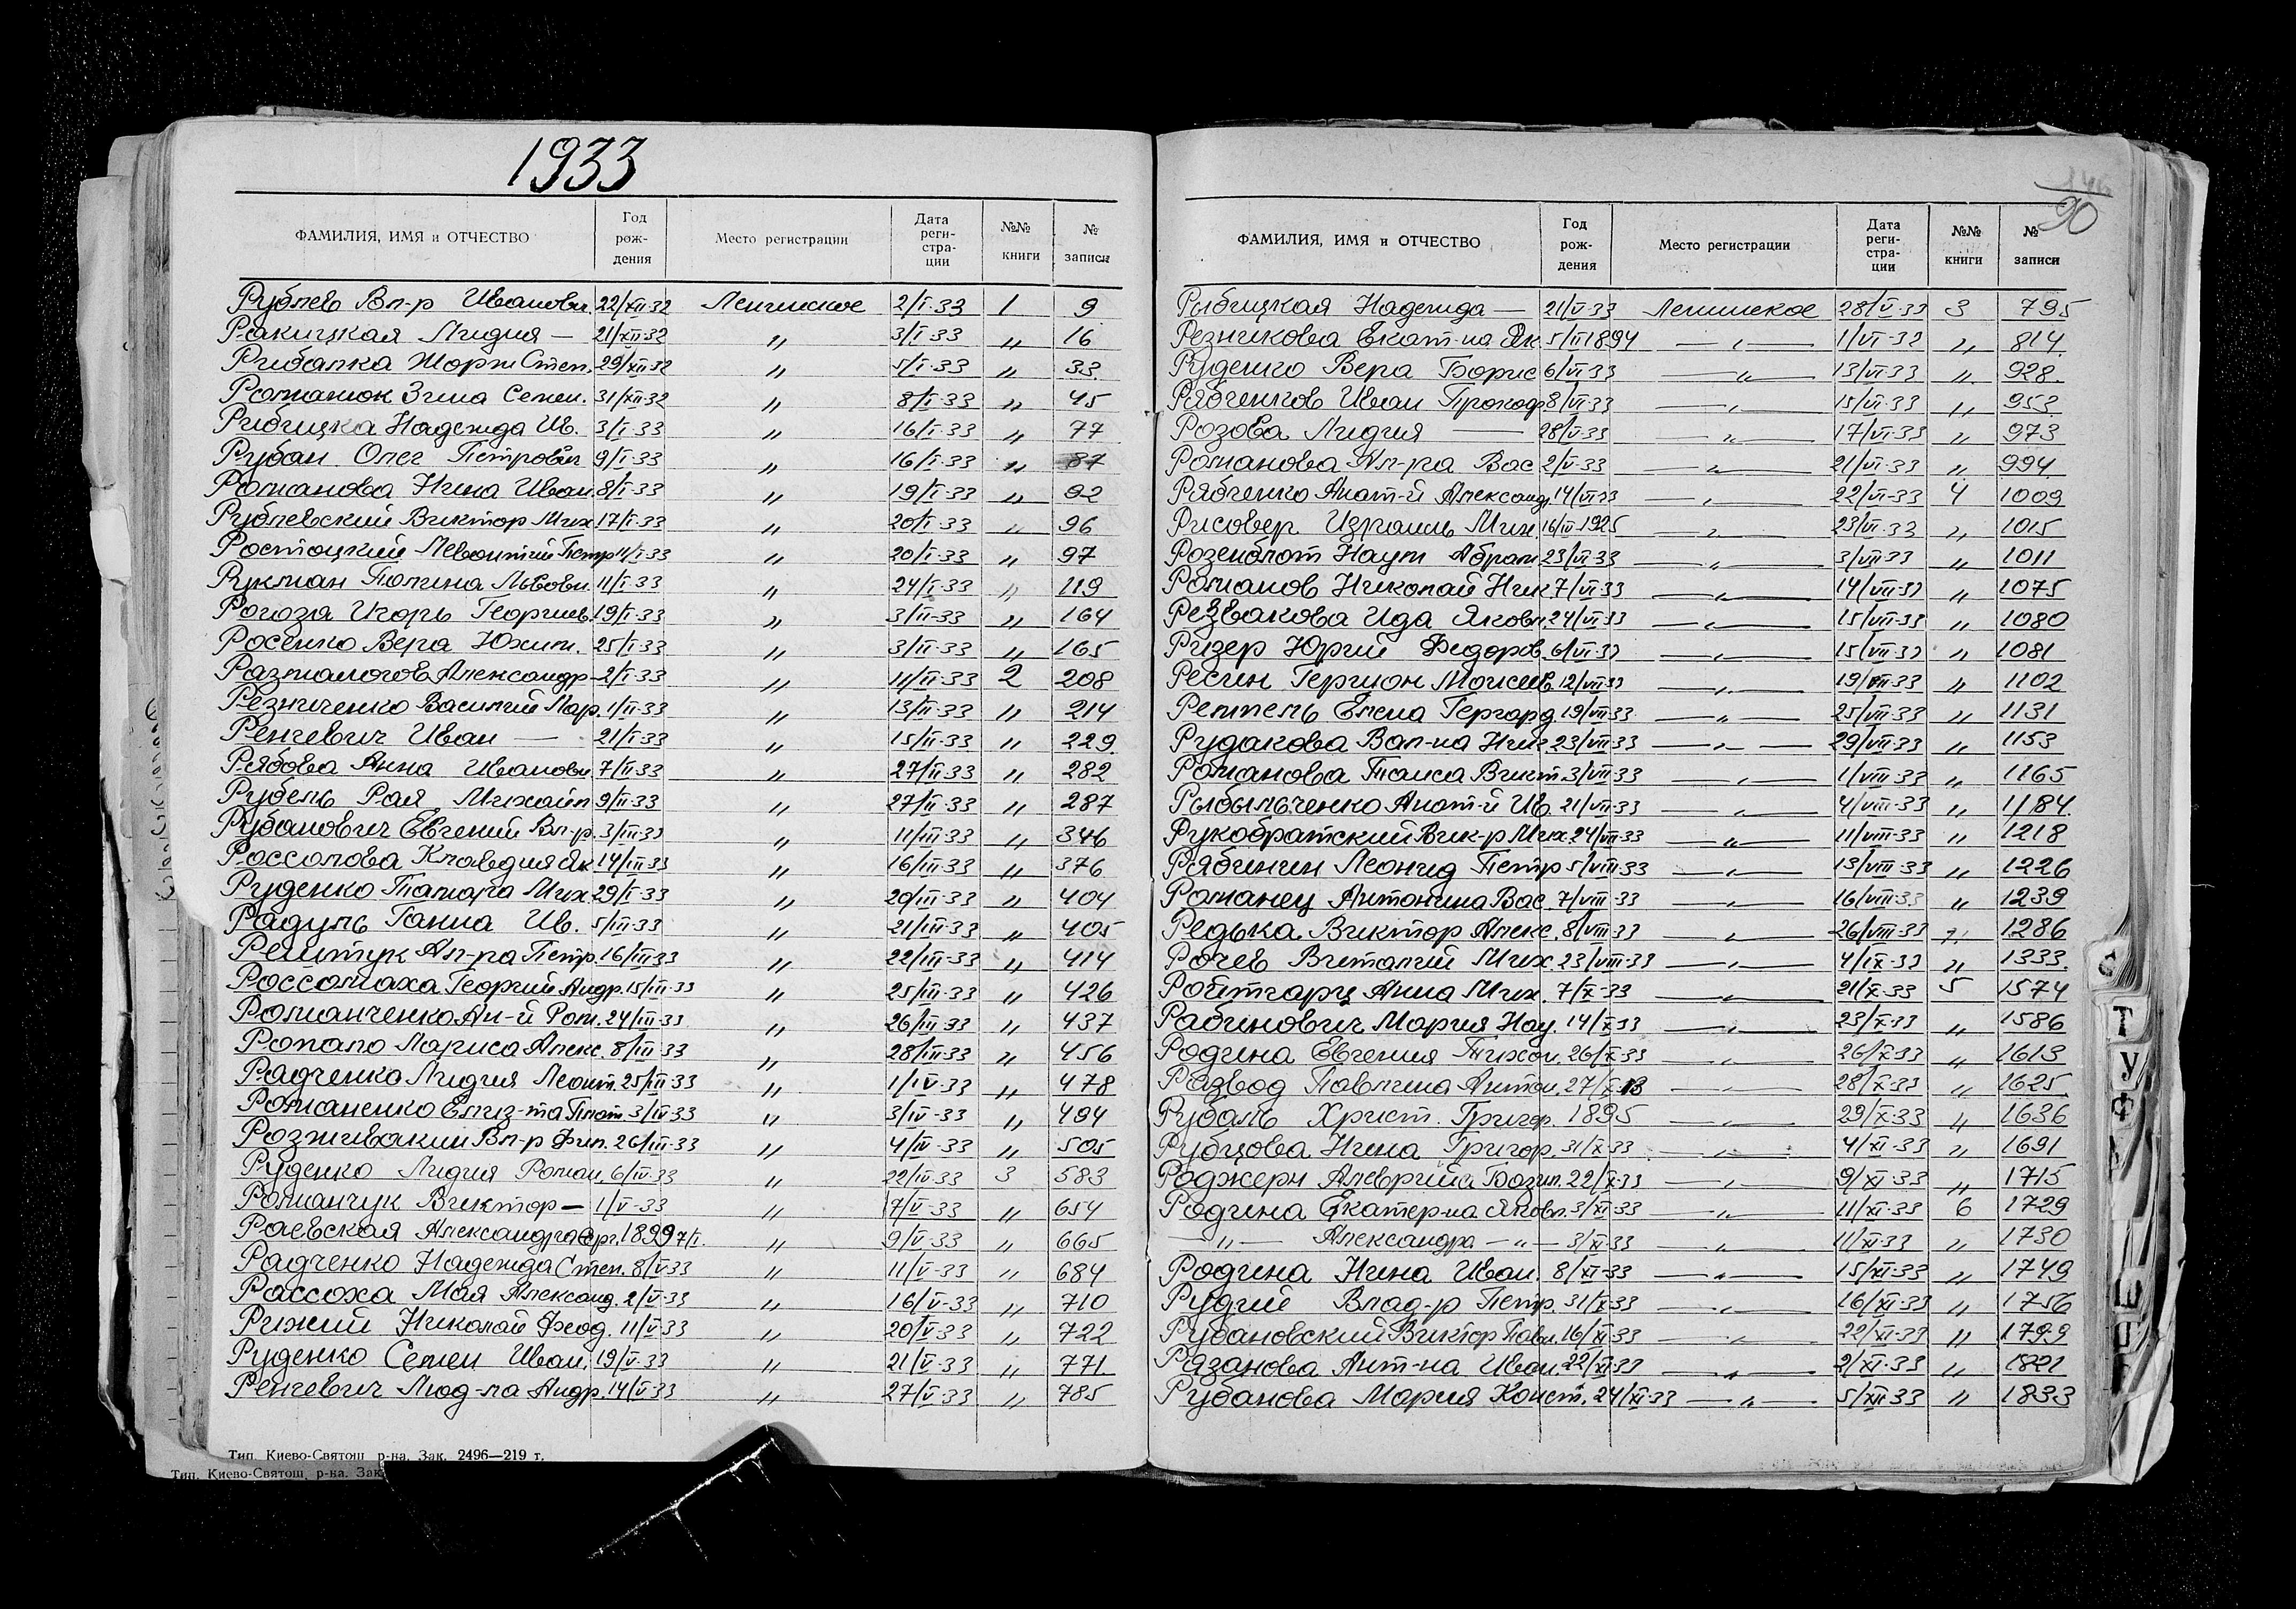 1933
90
ФАМИЛИЯ, ИМЯ и ОТЧЕСТВО Год рож- дения Место регистрации Дата реги- стра- ции №№ книги № записи
Рублев Вл-р Ивановн. 22/XII-32 Ленинское 2/I-33 1 9
Ракицкая Лидия — 21/XII-32 〃 3/I-33 〃 16
Рибалка Жорж Степ. 29/XII-32 〃 5/I-33 〃 33
Романюк Зина Семен. 31/XII-32 〃 8/I-33 〃 45
Рибицка Надежда Ив. 3/I-33 〃 16/I-33 〃 77
Рубан Олег Петрович 9/I-33 〃 16/I-33 〃 87
Романова Нина Иван. 8/I-33 〃 19/I-33 〃 92
Рублевский Виктор Мих 17/I-33 〃 20/I-33 〃 96
Ростоцкий Левонтий Петр 11/I-33 〃 20/I-33 〃 97
Рукман Полина Львовн. 11/I-33 〃 24/I-33 〃 119
Рогоза Игорь Георгиев. 19/I-33 〃 3/II-33 〃 164
Росенко Вера Юхим. 25/I-33 〃 3/II-33 〃 165
Размологов Александр — 2/I-33 〃 11/II-33 2 208
Резниченко Василий Лар. 1/II-33 〃 13/II-33 〃 214
Ренгевич Иван — 21/I-33 〃 15/II-33 〃 229
Рябова Анна Ивановн 7/II-33 〃 27/II-33 〃 282
Рубель Рая Михайл 9/II-33 〃 27/II-33 〃 287
Рубанович Евгений Вл-р. 3/III-33 〃 11/III-33 〃 346
Россолова Клавдия Як 14/III-33 〃 16/III-33 〃 376
Руденко Тамара Мих 29/I-33 〃 20/III-33 〃 404
Радуль Ганна Ив. 5/III-33 〃 21/III-33 〃 405
Рештук Ал-ра Петр. 16/III-33 〃 22/III-33 〃 414
Россомаха Георгий Андр. 15/III-33 〃 25/III-33 〃 426
Романченко Ан-й Ром. 24/III-33 〃 26/III-33 〃 437
Ропало Лариса Алекс. 8/III-33 〃 28/III-33 〃 456
Радченко Лидия Леонт. 25/III-33 〃 1/IV-33 〃 478
Романенко Елиз-та Плат. 3/IV-33 〃 3/IV-33 〃 494
Розживакин Вл-р Фил. 26/III-33 〃 4/IV-33 〃 505
Руденко Лидия Роман. 6/IV-33 〃 22/IV-33 3 583
Романчук Виктор — 1/V-33 〃 7/V-33 〃 654
Раевская Александра 1899 7/I. 〃 9/V-33 〃 665
Радченко Надежда Степ. 8/V-33 〃 11/V-33 〃 684
Рассоха Мая Александ. 2/V-33 〃 16/V-33 〃 710
Рижий Николай Феод. 11/V-33 〃 20/V-33 〃 722
Руденко Семен Иван. 19/V-33 〃 21/V-33 〃 771
Ренгевич Люд-ла Андр. 14/V-33 〃 27/V-33 〃 785
Тип. Киево-Святош. р-на. Зак. 2496—219 т.
Тип. Киево-Святош. р-на. Зак.
ФАМИЛИЯ, ИМЯ и ОТЧЕСТВО Год рож- дения Место регистрации Дата реги- стра- ции №№ книги № записи
Рыбицкая Надежда — 21/V-33 Ленинское 28/V-33 3 795
Резникова Екат-на Як 5/II 1894 — 〃 — 1/VI-33 〃 814
Руденко Вера Борис 6/VI-33 — 〃 — 13/VI-33 〃 928
Рябченков Иван Прокоф 8/VI-33 — 〃 — 15/VI-33 〃 953
Розова Лидия — 28/V-33 — 〃 — 17/VI-33 〃 973
Романова Ал-ра Вас 2/V-33 — 〃 — 21/VI-33 〃 994
Рябченко Анат-й Александ. 14/VI-33 — 〃 — 22/VI-33 4 1009
Рисовер Израиль Мих. 16/IV-1925 — 〃 — 23/VI-33 〃 1015
Розенблот Наум Абрам 23/VI-33 — 〃 — 3/VII-33 〃 1011
Романов Николай Ник 7/VI-33 — 〃 — 14/VII-33 〃 1075
Резвакова Ида Яковл. 24/VI-33 — 〃 — 15/VII-33 〃 1080
Ризер Юрий Федоров. 6/VI-33 — 〃 — 15/VII-33 〃 1081
Ресин Герцион Моисеев. 12/VII-33 — 〃 — 19/VII-33 〃 1102
Реппель Елена Гергард. 19/VII-33 — 〃 — 25/VII-33 〃 1131
Рудакова Вал-на Ник. 23/VII-33 — 〃 — 29/VII-33 〃 1153
Романова Таиса Викт. 3/VII-33 — 〃 — 1/VIII-33 〃 1165
Рыбыльченко Анат-й Ив. 21/VII-33 — 〃 — 4/VIII-33 〃 1184
Рукобратский Вик-р Мих. 24/VII-33 — 〃 — 11/VIII-33 〃 1218
Рябинин Леонид Петр 5/VIII-33 — 〃 — 13/VIII-33 〃 1226
Романец Антонина Вас. 7/VIII-33 — 〃 — 16/VIII-33 〃 1239
Редька Виктор Алекс. 8/VIII-33 — 〃 — 26/VIII-33 〃 1286
Рочев Виталий Мих. 23/VIII-33 — 〃 — 4/IX-33 〃 1333
Ройтгарц Анна Мих. 7/X-33 — 〃 — 21/X-33 5 1574
Рабинович Мария Нау. 14/X-33 — 〃 — 23/X-33 〃 1586
Родина Евгения Тихон. 26/X-33 — 〃 — 26/X-33 〃 1613
Развод Павлина Антон. 27/X-33 — 〃 — 28/X-33 〃 1625
Рубаль Христ. Григор. 1895 — 〃 — 29/X-33 〃 1636
Рубцова Нина Григор. 31/X-33 — 〃 — 4/XI-33 〃 1691
Роджерн 22/X-33 — 〃 — 9/XI-33 〃 1715
Родина Екатер-на Яковл. 3/XI-33 — 〃 — 11/XI-33 6 1729
— 〃 — Александра — 〃 — 3/XI-33 — 〃 — 11/XI-33 〃 1730
Родина Нина Иван. 8/XI-33 — 〃 — 15/XI-33 〃 1749
Рудий Влад-р Петр. 31/X-33 — 〃 — 16/XI-33 〃 1756
Рубановский Виктор Павл. 16/XI-33 — 〃 — 22/XI-33 〃 1799
Рязанова Ант-на Иван. 22/XI-33 — 〃 — 2/XI-33 〃 1821
Рубанова Мария Конст. 24/XI-33 — 〃 — 5/XII-33 〃 1833
С
Т
У
Ф
Ш